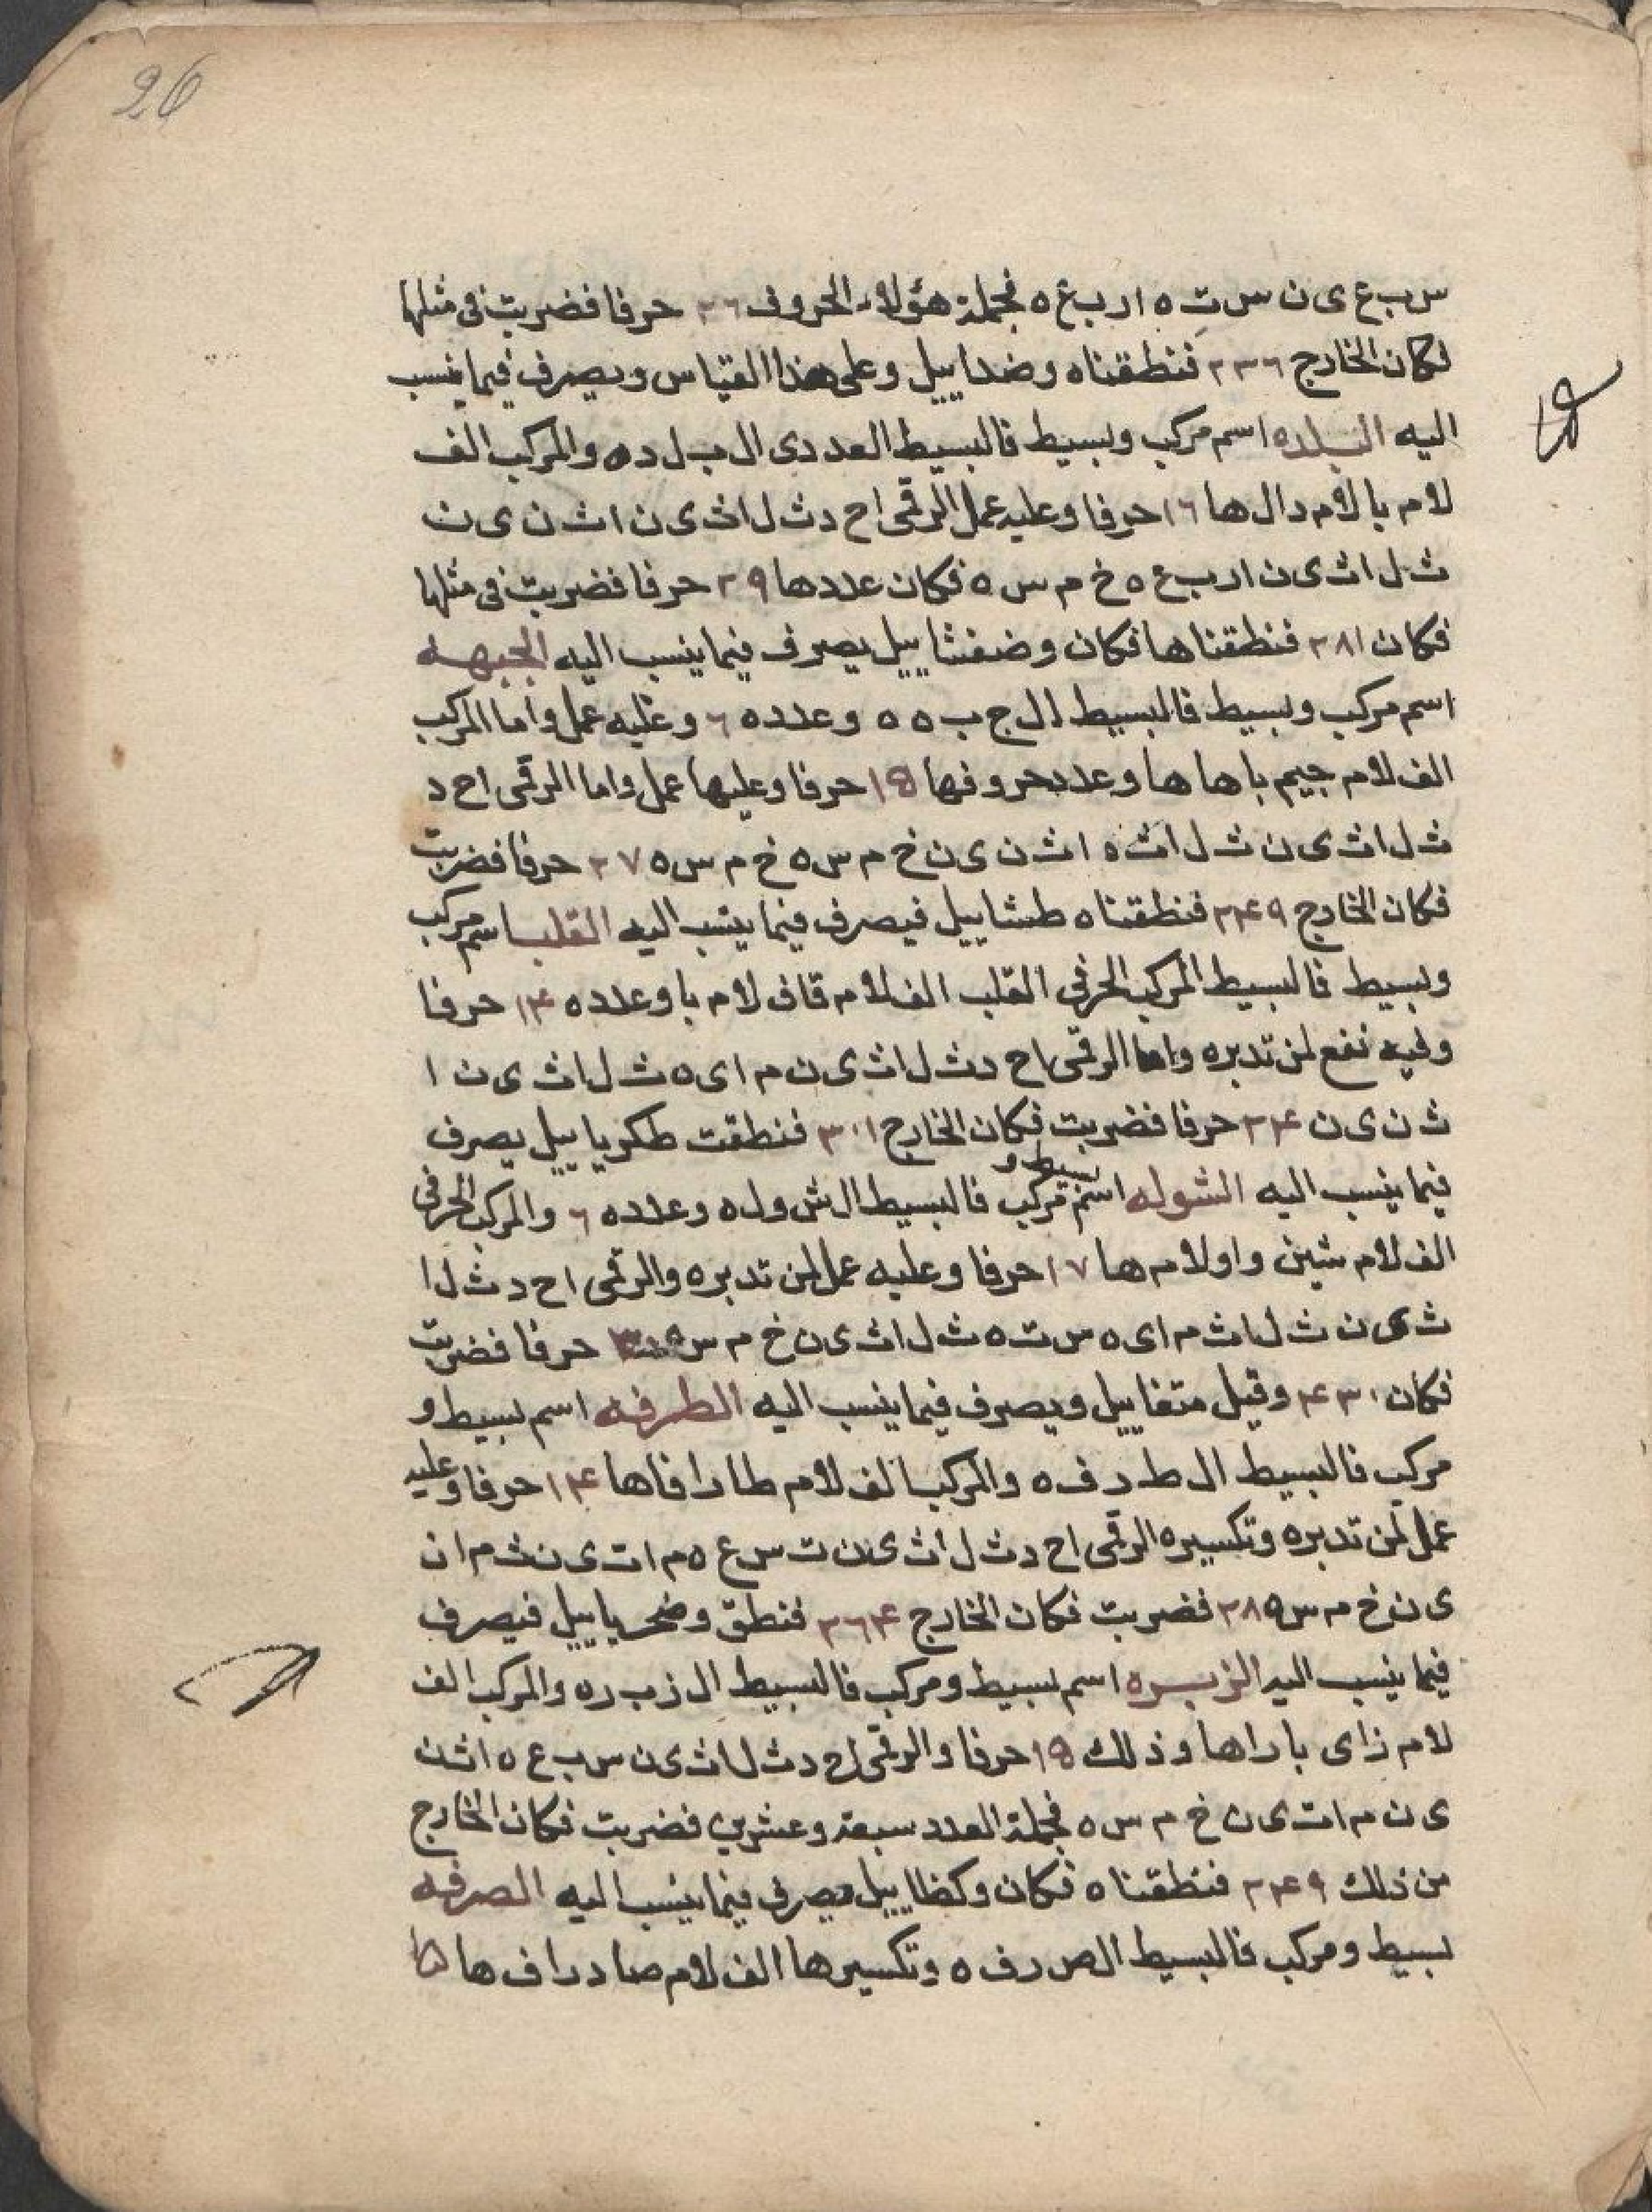 26
س ب ع ی ن س ت ه ا ر ب ع ه فجملة هؤلاء الحروف ٢٦ حرفا فضربت فى مثلها
فكان الخارج ٢٣٦ فنطقناه وضداييل وعلى هذا القياس ويصرف فيما ينسب
اليه البلده اسم مركب وبسيط فالبسيط العددى ال ب ل د ه والمركب الف
لام با لام دال ها ١٦ حرفا وعليه عمل الرقمى اح د ث ل ا ث ی ن ا ث ن ی ن
ث ل ا ث ی ن ا ر ب ع ه خ م س ه فكان عددها ٢٩ حرفا فضربت فى مثلها
فكان ٣٨١ فنطقناها فكان وضفشاييل يصرف فيما ينسب اليه الجبهه
اسم مركب وبسيط فالبسيط ال ج ب ه ه وعدده ٦ وعليه عمل واما المركب
الف لام جيم با ها ها وعدد حروفها ١٥ حرفا وعليها عمل واما الرقمى اح د
ث ل ا ث ی ن ث ل ا ث ه ا ث ن ی ن خ م س ه خ م س ه ٢٧ حرفا فضربت
فكان الخارج ٣٤٩ فنطقناه طشاييل فيصرف فيما ينسب اليه القلب اسم مركب
وبسيط فالبسيط المركب الحرفى القلب الف لام قاف لام با وعدده ١٤ حرفا
وفيه نفع لمن تدبره واما الرقمى اح د ث ل ا ث ی ن م ا ی ه ث ل ا ث ی ن ا
ث ن ی ن ٢٤ حرفا فضربت فكان الخارج ٣٠١ فنطقت طكرياييل يصرف
فيما ينسب اليه الشوله اسم بسيط و مركب فالبسيط ال ش و ل ه وعدده ٦ والمركب الحرفى
الف لام شين واو لام ها ١٧ حرفا وعليه عمل لمن تدبره والرقمى اح د ث ل ا
ث ی ن ث ل ا ث م ا ی ه س ت ه ث ل ا ث ی ن خ م س ه حرفا فضربت
فكان ٤٣٠ وقيل متغاييل ويصرف فيما ينسب اليه الطرفه اسم بسيط و
مركب فالبسيط ال ط ر ف ه والمركب الف لام طا را فا ها ١٤ حرفا وعليه
عمل لمن تدبره وتكسيره الرقمى اح د ث ل ا ث ی ن ت س ع ه م ا ت ی ن ث م ا ن
ی ن خ م س ه ٢٨ فضربت فكان الخارج ٣٦٤ فنطق وضحرياييل فيصرف
فيما ينسب اليه الزبره اسم بسيط ومركب فالبسيط ال ز ب ر ه والمركب الف
لام زاى با را ها وذلك ١٥ حرفا والرقمى اح د ث ل ا ث ی ن س ب ع ه ا ث ن
ی ن م ا ت ی ن خ م س ه فجملة العدد سبعة وعشرين فضربت فكان الخارج
من ذلك ٣٤٩ فنطقناه فكان وكظاييل يصرف فيما ينسب اليه الصرفه
بسيط ومركب فالبسيط ال ص ر ف ه وتكسيرها الف لام صاد را ف ها ١٥